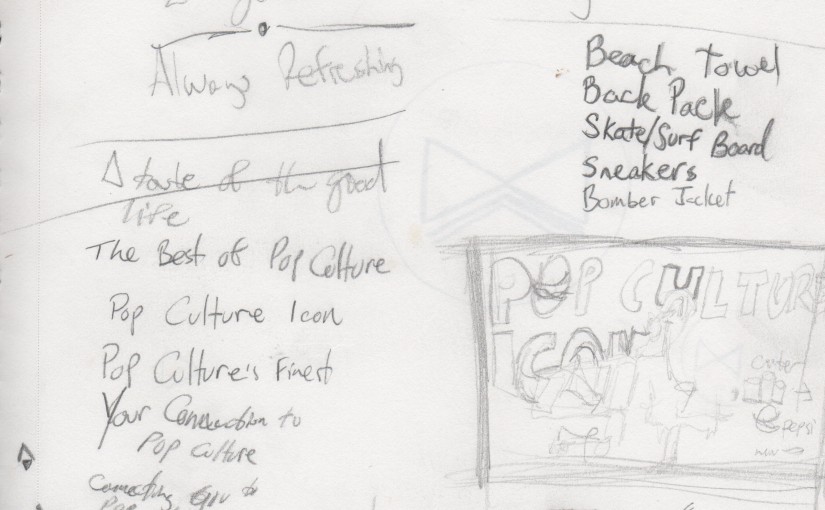 Always Refreshing
A taste of the good
life
The Best of Pop Culture
Pop Culture Icon
Pop Culture's Finest
Your Connection to
Pop Culture
Connecting you to
Pop
Beach Towel
Back Pack
Skate/Surf Board
Sneakers
Bomber Jacket
POP CULTURE
ICON
enter
pepsi